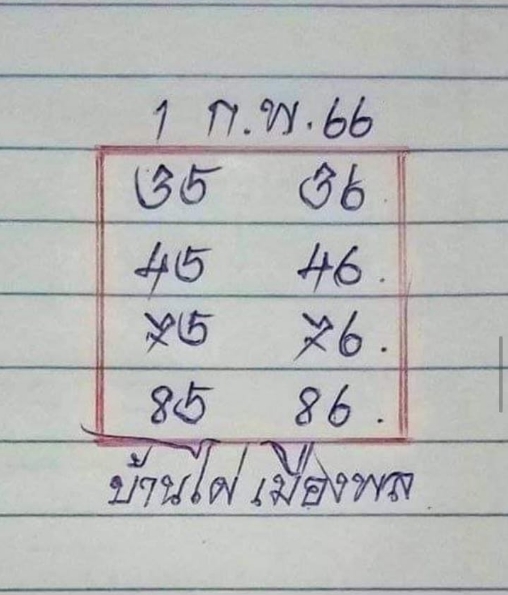 1 ก.พ.66
35 36.
45 46.
75 76.
85 86.
บ้านไผ่ เมืองพล